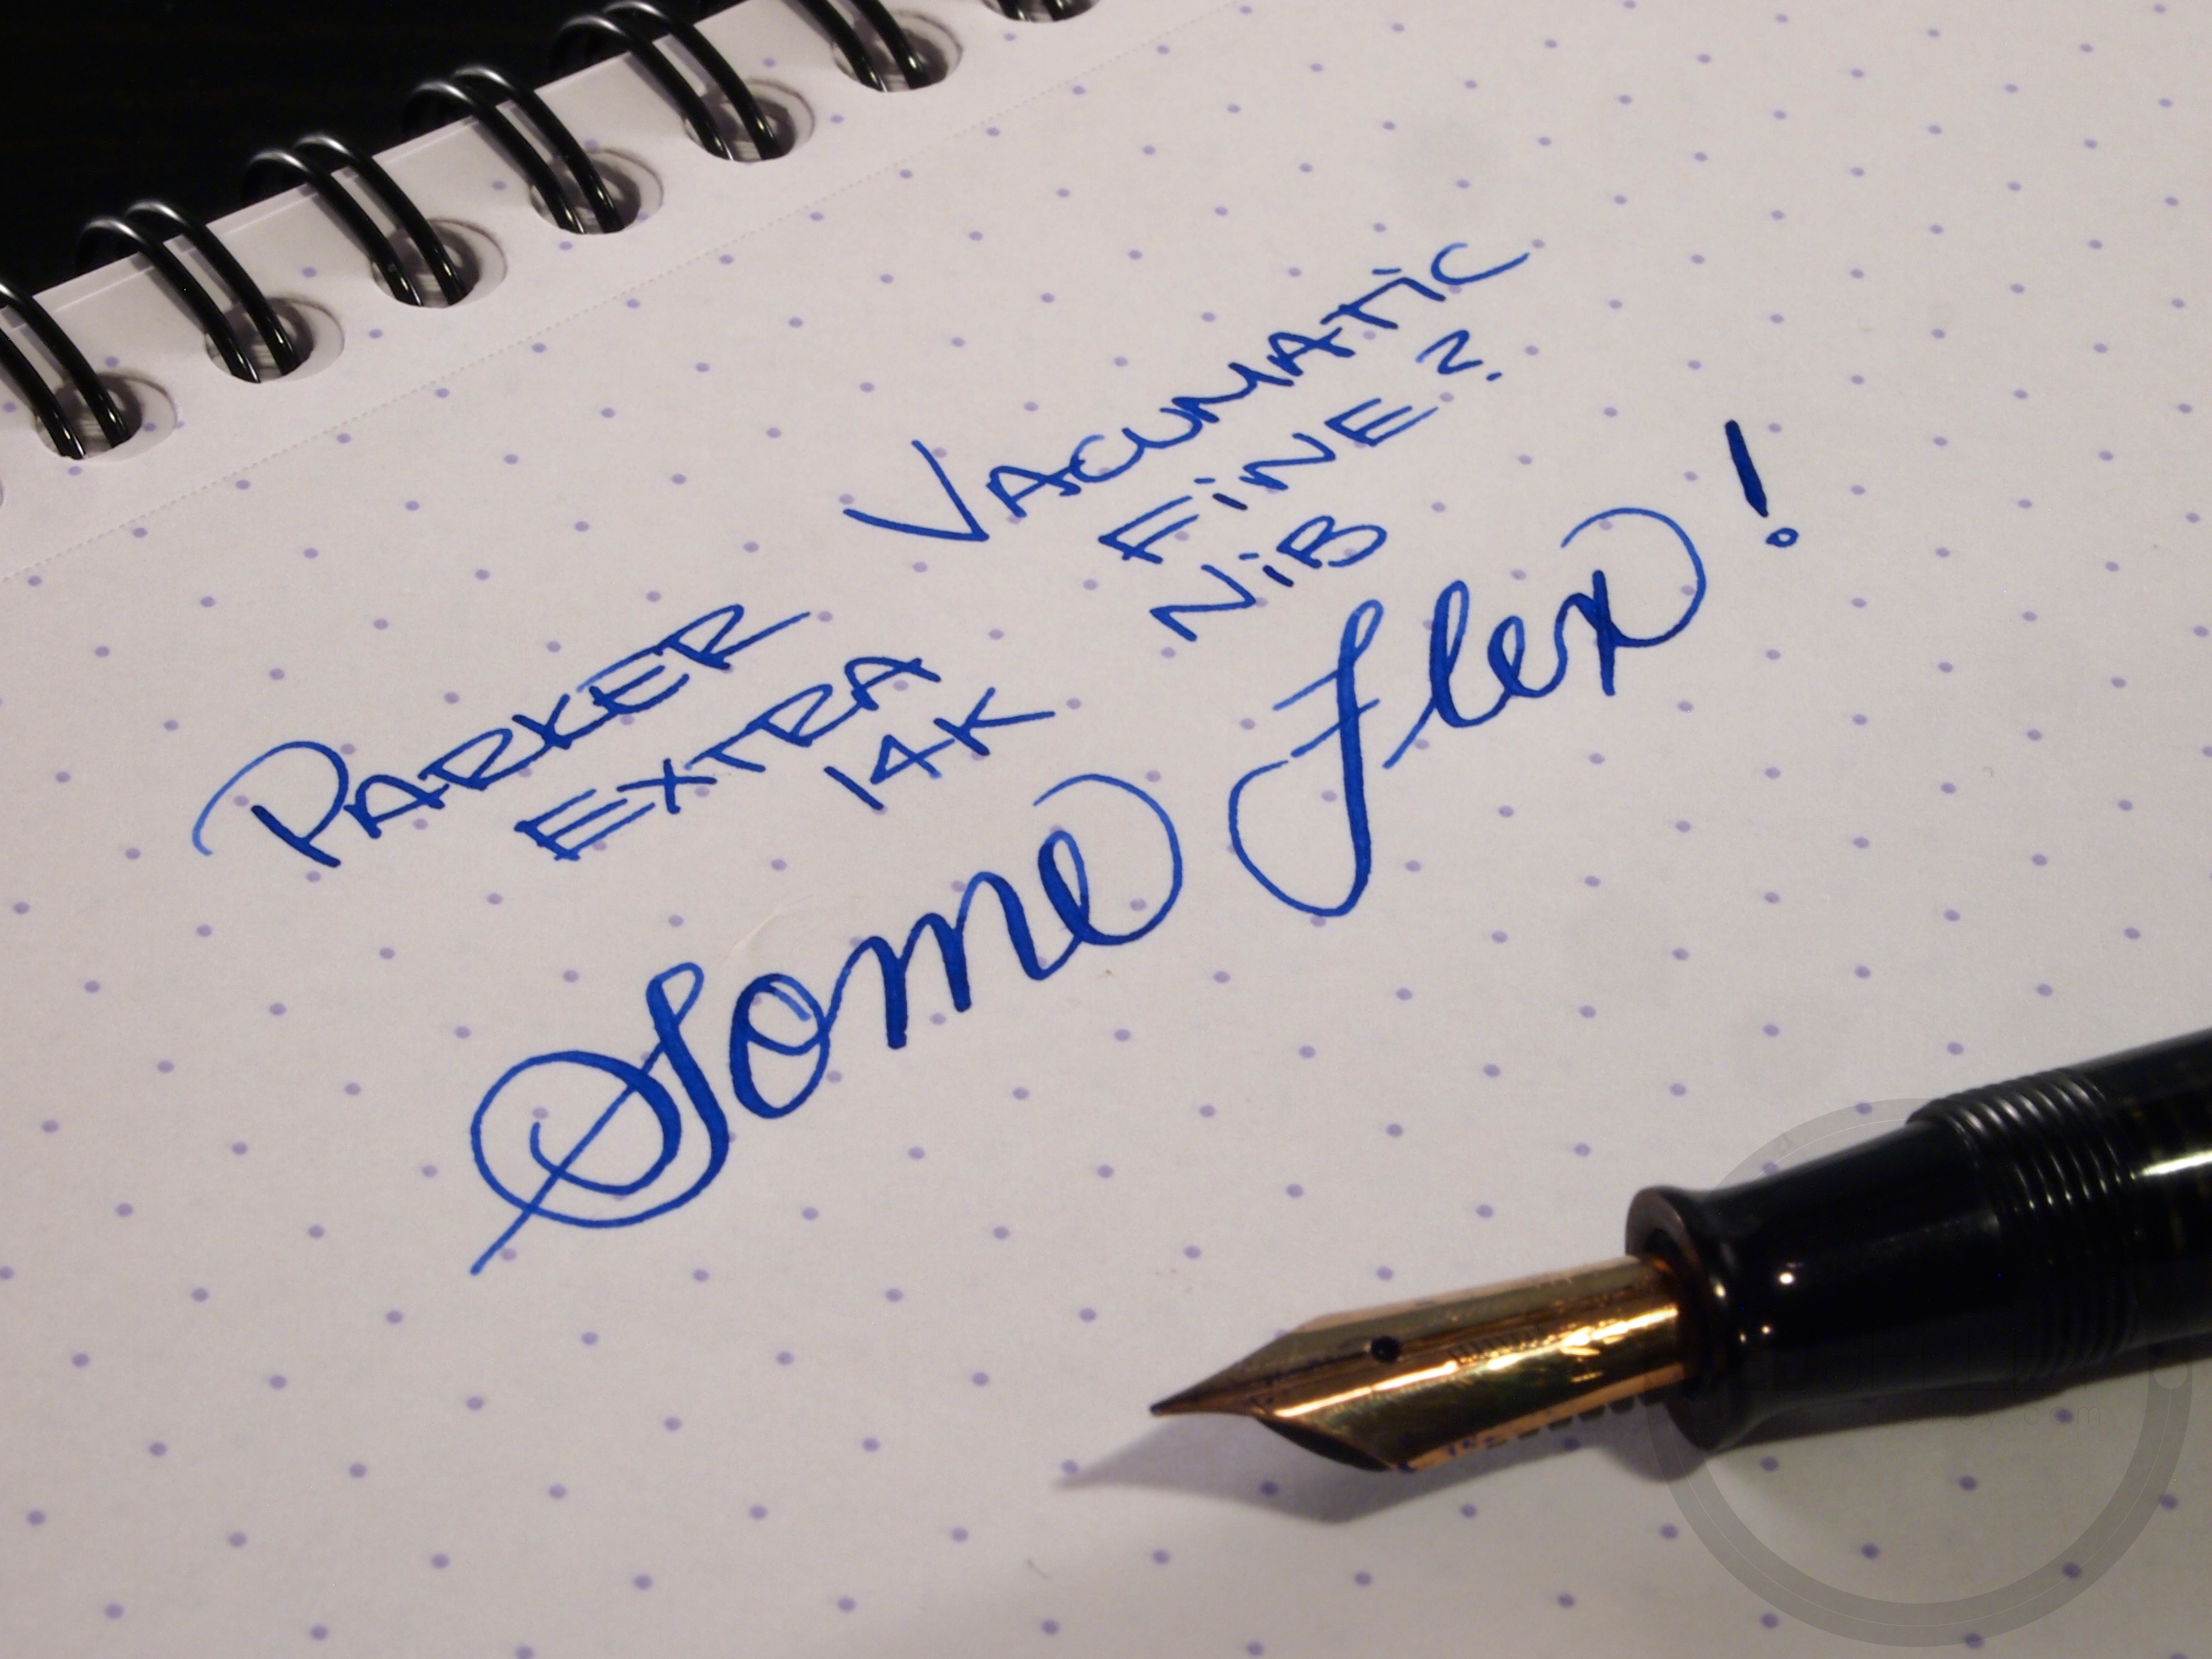 PARKER VACUMATIC
EXTRA FINE?
14K NIB
Some Flex!